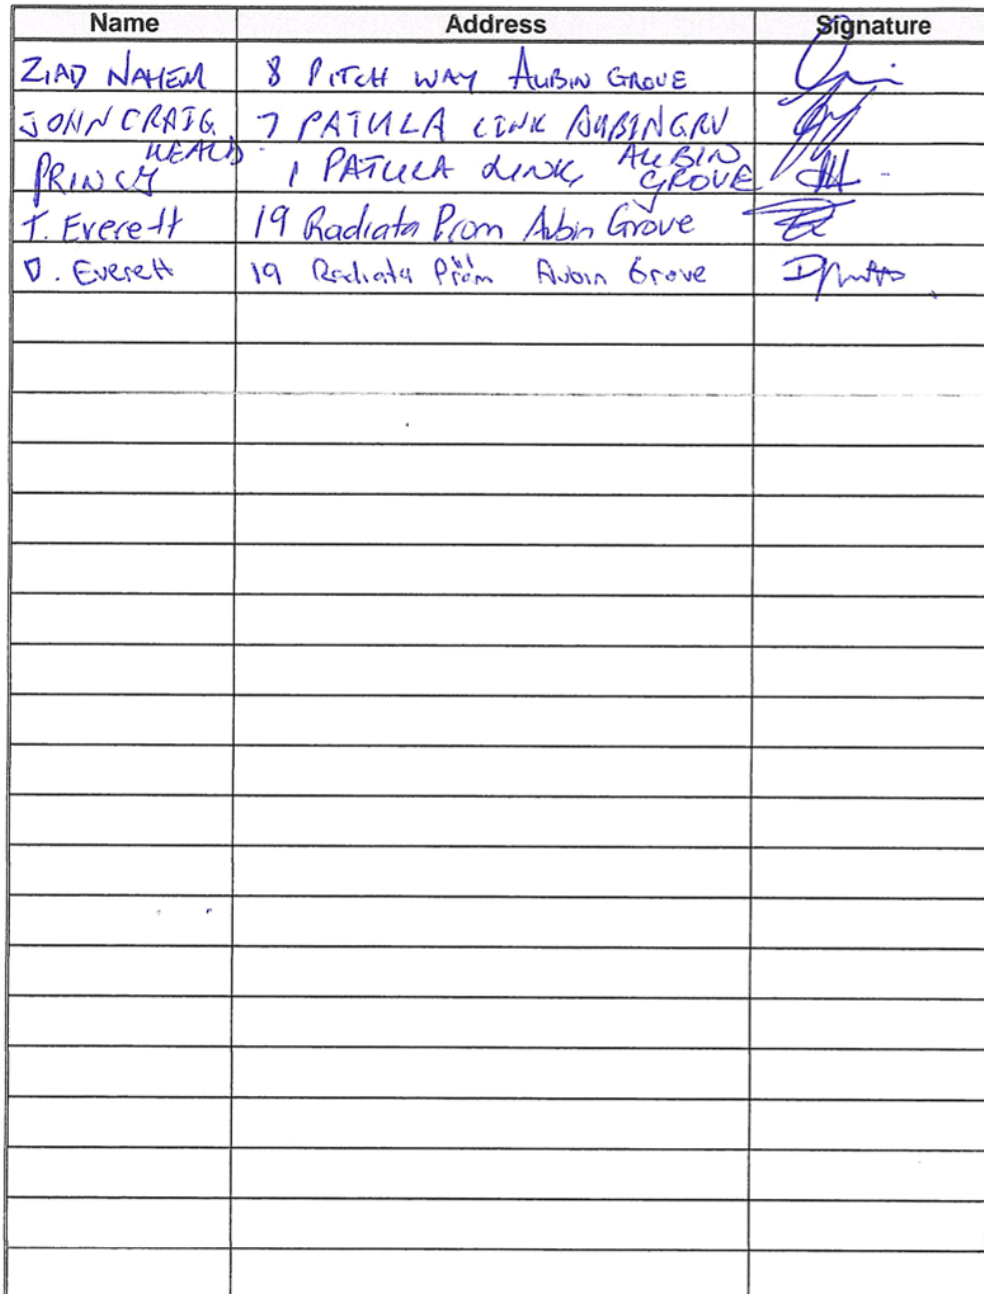 Name Address Signature
ZIAD NAHEM 8 PITCH WAY AUBIN GROVE
JOHN CRAIG 7 PATULA LINK AUBIN GRV
HEALD
PRINCY 1 PATULA LINK, AUBIN GROVE
T. Everett 19 Radiata Prom Aubin Grove
D. Everett 19 Radiata Prom Aubin Grove